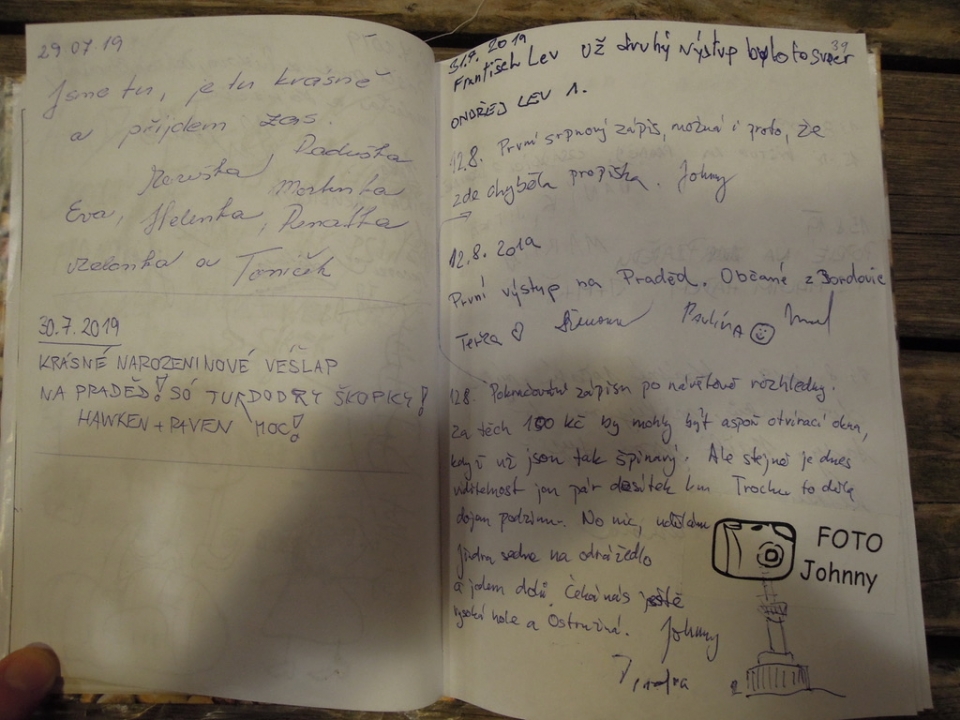 29.07.19
Jsme tu, je tu krásně
a přijdem zas.
Raduška
Maruška, Martinka
Eva, Helenka, Renatka
a Toníček
30.7.2019
KRÁSNÉ NAROZENINOVÉ VEŠLAP
NA PRADĚD! SÓ TU DOBRY ŠKOPKY!
HAWKEN + RAVEN MOC!
39
31.7. 2019
František Lev UŽ druhý výstup bylo to super
ONDŘEJ LEV 1.
12.8. První srpnový zápis, možná i proto, že
zde chyběla propiska. Johny
12.8. 2019
První výstup na Praděd. Občané z Bordovic
Terka Simona Paulína
12.8. Pokračování zápisu po návštěvě rozhledny.
Za těch 100 kč by mohly být aspoň otvírací okna,
když už jsou tak špinavý. Ale stejně je dnes
viditelnost jen pár desítek km Trochu to dělá
dojem podzimu. No nic, uděláme
Jindra sedne na odrážedlo
a jedem dolů. Čeká nás ještě
vysoká hole a Ostružná. Johnny
Jindra
FOTO
Johnny